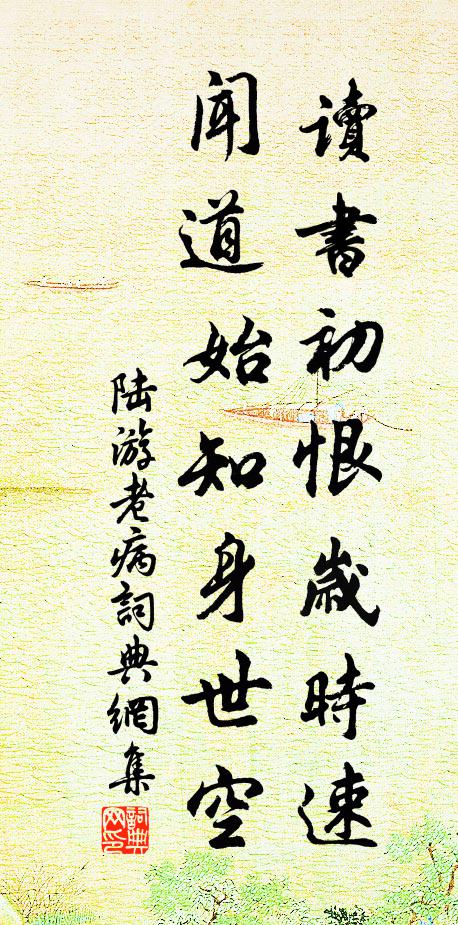 讀書初恨歲時速
聞道始知身世空
陸游老病詞典網集
詞典網印